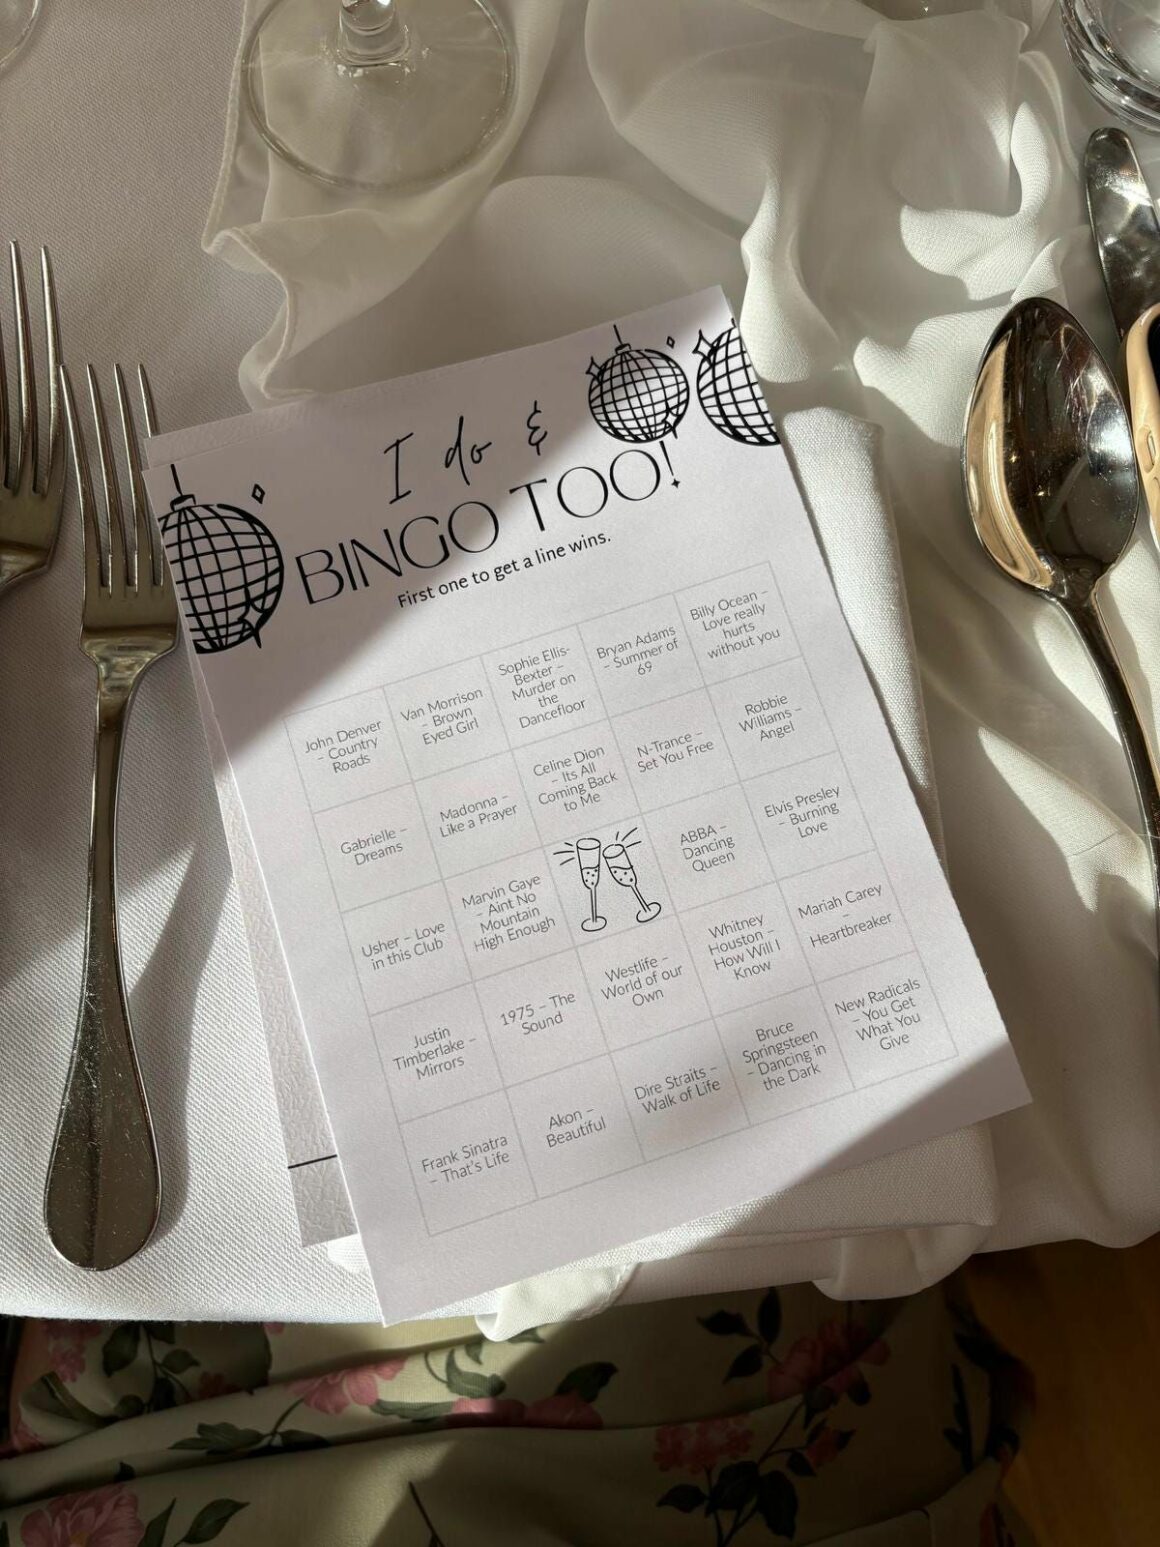 I do &
BINGO TOO!
First one to get a line wins.
John Denver
– Country
Roads
Van Morrison
– Brown
Eyed Girl
Sophie Ellis-
Bexter –
Murder on
the
Dancefloor
Bryan Adams
– Summer of
69
Billy Ocean –
Love really
hurts
without you
Gabrielle –
Dreams
Madonna –
Like a Prayer
Celine Dion
– Its All
Coming Back
to Me
N-Trance –
Set You Free
Robbie
Williams –
Angel
Usher – Love
in this Club
Marvin Gaye
– Aint No
Mountain
High Enough
ABBA –
Dancing
Queen
Elvis Presley
– Burning
Love
Justin
Timberlake –
Mirrors
1975 – The
Sound
Westlife –
World of our
Own
Whitney
Houston –
How Will I
Know
Mariah Carey
–
Heartbreaker
Frank Sinatra
– That's Life
Akon –
Beautiful
Dire Straits –
Walk of Life
Bruce
Springsteen
– Dancing in
the Dark
New Radicals
– You Get
What You
Give